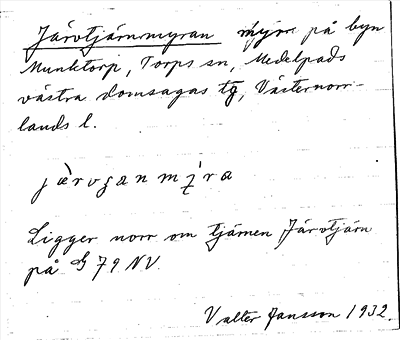 Järvtjärnmyran myra på byn
Munktorp, Torps sn, Medelpads
västra domsagas tg, Västernorr-
lands l.
Ligger norr om tjärnen Järvtjärn
på G 79 NV.
Valter Jansson 1932.